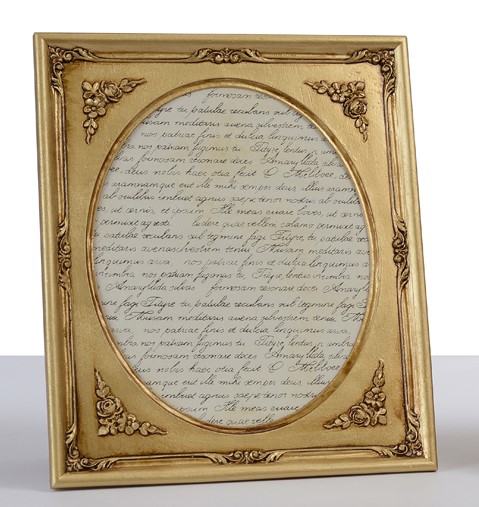 formosam
tu patulae recubans sub
musam meditaris avena silvestrem
nos patriae finis et dulcia linquimus
nos patriam fugimus tu Tityre lentus in umbra
formosam resonare doces Amaryllida silvas
deus nobis haec otia fecit O Meliboee
erit ille mihi semper deus illius aram
ab ovilibus imbuet agnus saepe tener nostris ab ovilibus
ut cernis, et ipsum Ille meas errare boves, ut
permisit agresti ludere quae vellem calamo permisit
patulae recubans sub tegmine fagi Tityre, tu patulae
meditaris avenasilvestrem tenui Musam meditaris
linquimus arva nos patriae finis et dulcia linquimus
umbra nos patriam fugimus tu, Tityre lentus in umbra nos
Amaryllida silvas formosam resonare doces Amaryllida
fagi Tityre, tu patulae recubans sub tegmine fagi
Musam meditaris avena silvestrem tenui
nos patriae finis et dulcia linquimus arva
nos patriam fugimus tu Tityre lentus in umbra
formosam resonare doces Amaryllida
deus nobis haec otia fecit O
erit ille mihi semper deus
imbuet agnus saepe tener nostris ab
ipsum Ille meas errare
quae